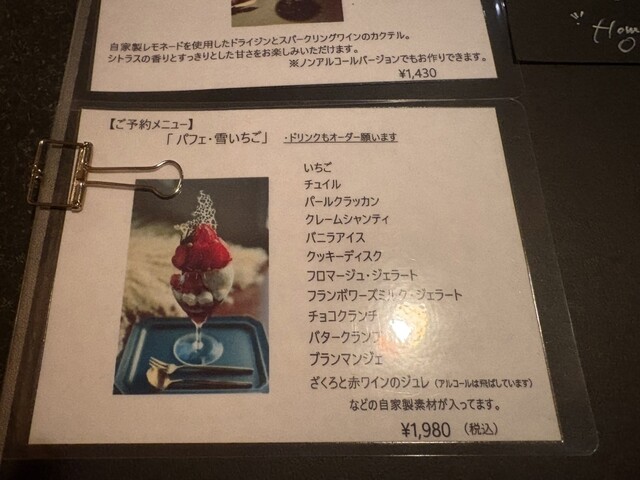 自家製レモネードを使用したドライジンとスパークリングワインのカクテル。
シトラスの香りとすっきりとした甘さをお楽しみいただけます。
※ノンアルコールバージョンでもお作りできます。
¥1,430
Hom
【ご予約メニュー】
「 パフェ・雪いちご」 ・ドリンクもオーダー願います
いちご
チュイル
パールクラッカン
クレームシャンティ
バニラアイス
クッキーディスク
フロマージュ・ジェラート
フランボワーズミルク・ジェラート
チョコクランチ
バタークランブ
ブランマンジェ
ざくろと赤ワインのジュレ（アルコールは飛ばしています）
などの自家製素材が入ってます。
¥1,980 （税込）